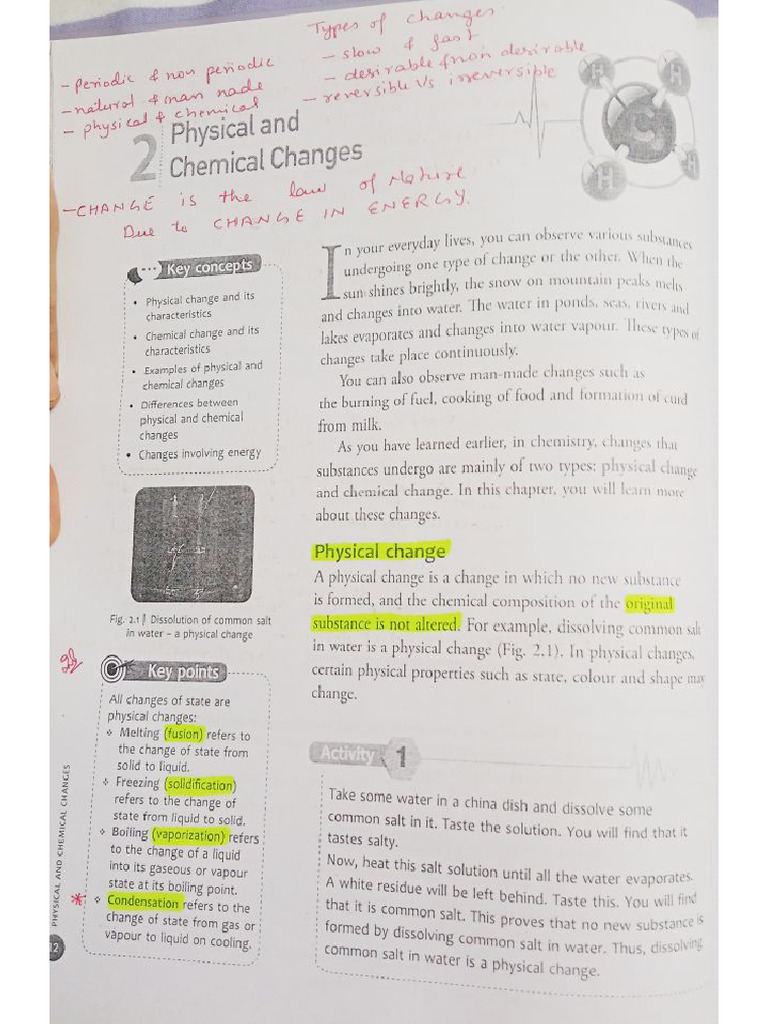 Types of changes
- slow & fast
- desirable & non desirable
- reversible Vs irreversible
- periodic & non periodic
- natural & man made
- physical & chemical
2 Physical and
Chemical Changes
- CHANGE is the law of Nature
Due to CHANGE IN ENERGY.
H
H
H
H
S
Key concepts
• Physical change and its
characteristics
• Chemical change and its
characteristics
• Examples of physical and
chemical changes
• Differences between
physical and chemical
changes
• Changes involving energy
Fig. 2.1 Dissolution of common salt
in water – a physical change
Key points
All changes of state are
physical changes:
❖ Melting (fusion) refers to
the change of state from
solid to liquid.
❖ Freezing (solidification)
refers to the change of
state from liquid to solid.
❖ Boiling (vaporization) refers
to the change of a liquid
into its gaseous or vapour
state at its boiling point.
* ❖ Condensation refers to the
change of state from gas or
vapour to liquid on cooling.
PHYSICAL AND CHEMICAL CHANGES
12
In your everyday lives, you can observe various substances
undergoing one type of change or the other. When the
sun shines brightly, the snow on mountain peaks melts
and changes into water. The water in ponds, seas, rivers and
lakes evaporates and changes into water vapour. These types of
changes take place continuously.
You can also observe man-made changes such as
the burning of fuel, cooking of food and formation of curd
from milk.
As you have learned earlier, in chemistry, changes that
substances undergo are mainly of two types: physical change
and chemical change. In this chapter, you will learn more
about these changes.
Physical change
A physical change is a change in which no new substance
is formed, and the chemical composition of the original
substance is not altered. For example, dissolving common salt
in water is a physical change (Fig. 2.1). In physical changes,
certain physical properties such as state, colour and shape may
change.
Activity 1
Take some water in a china dish and dissolve some
common salt in it. Taste the solution. You will find that it
tastes salty.
Now, heat this salt solution until all the water evaporates.
A white residue will be left behind. Taste this. You will find
that it is common salt. This proves that no new substance is
formed by dissolving common salt in water. Thus, dissolving
common salt in water is a physical change.